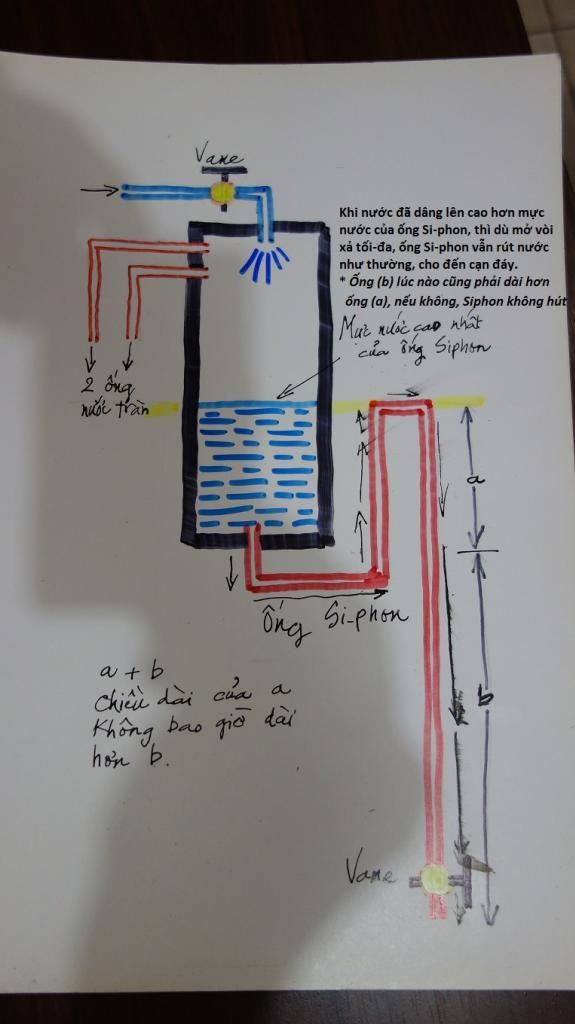 Vane
Khi nước đã dâng lên cao hơn mực
nước của ống Si-phon, thì dù mở vòi
xả tối-đa, ống Si-phon vẫn rút nước
như thường, cho đến cạn đáy.
* Ống (b) lúc nào cũng phải dài hơn
ống (a), nếu không, Siphon không hút
Mực nước cao nhất
của ống Siphon
2 ống
nước tràn
a
Ống Si-phon
a + b
Chiều dài của a
Không bao giờ dài
hơn b.
b
Vane